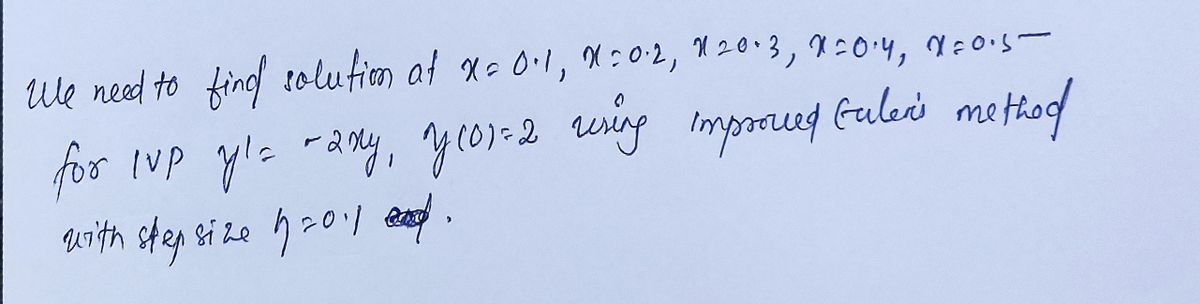 We need to find solution at x = 0.1, x = 0.2, x = 0.3, x = 0.4, x = 0.5
for IVP y' = -2xy, y(0) = 2 using improved Euler's method
with step size h = 0.1 .